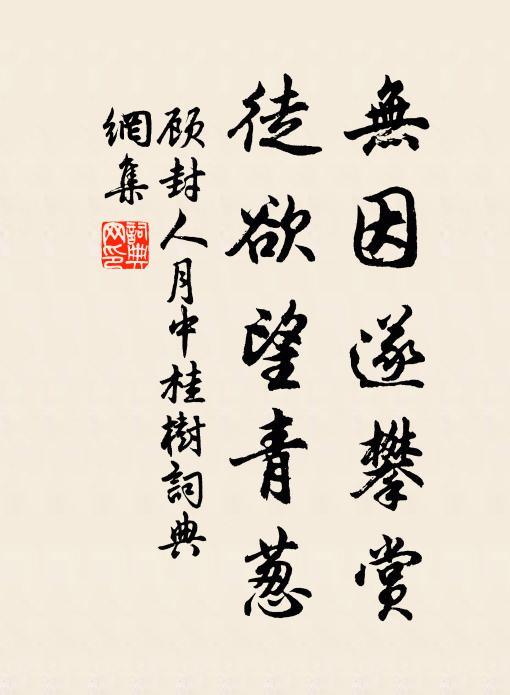 無因遂攀賞
徒欲望青蔥
顾封人月中桂樹詞典
網集
詞典
网印